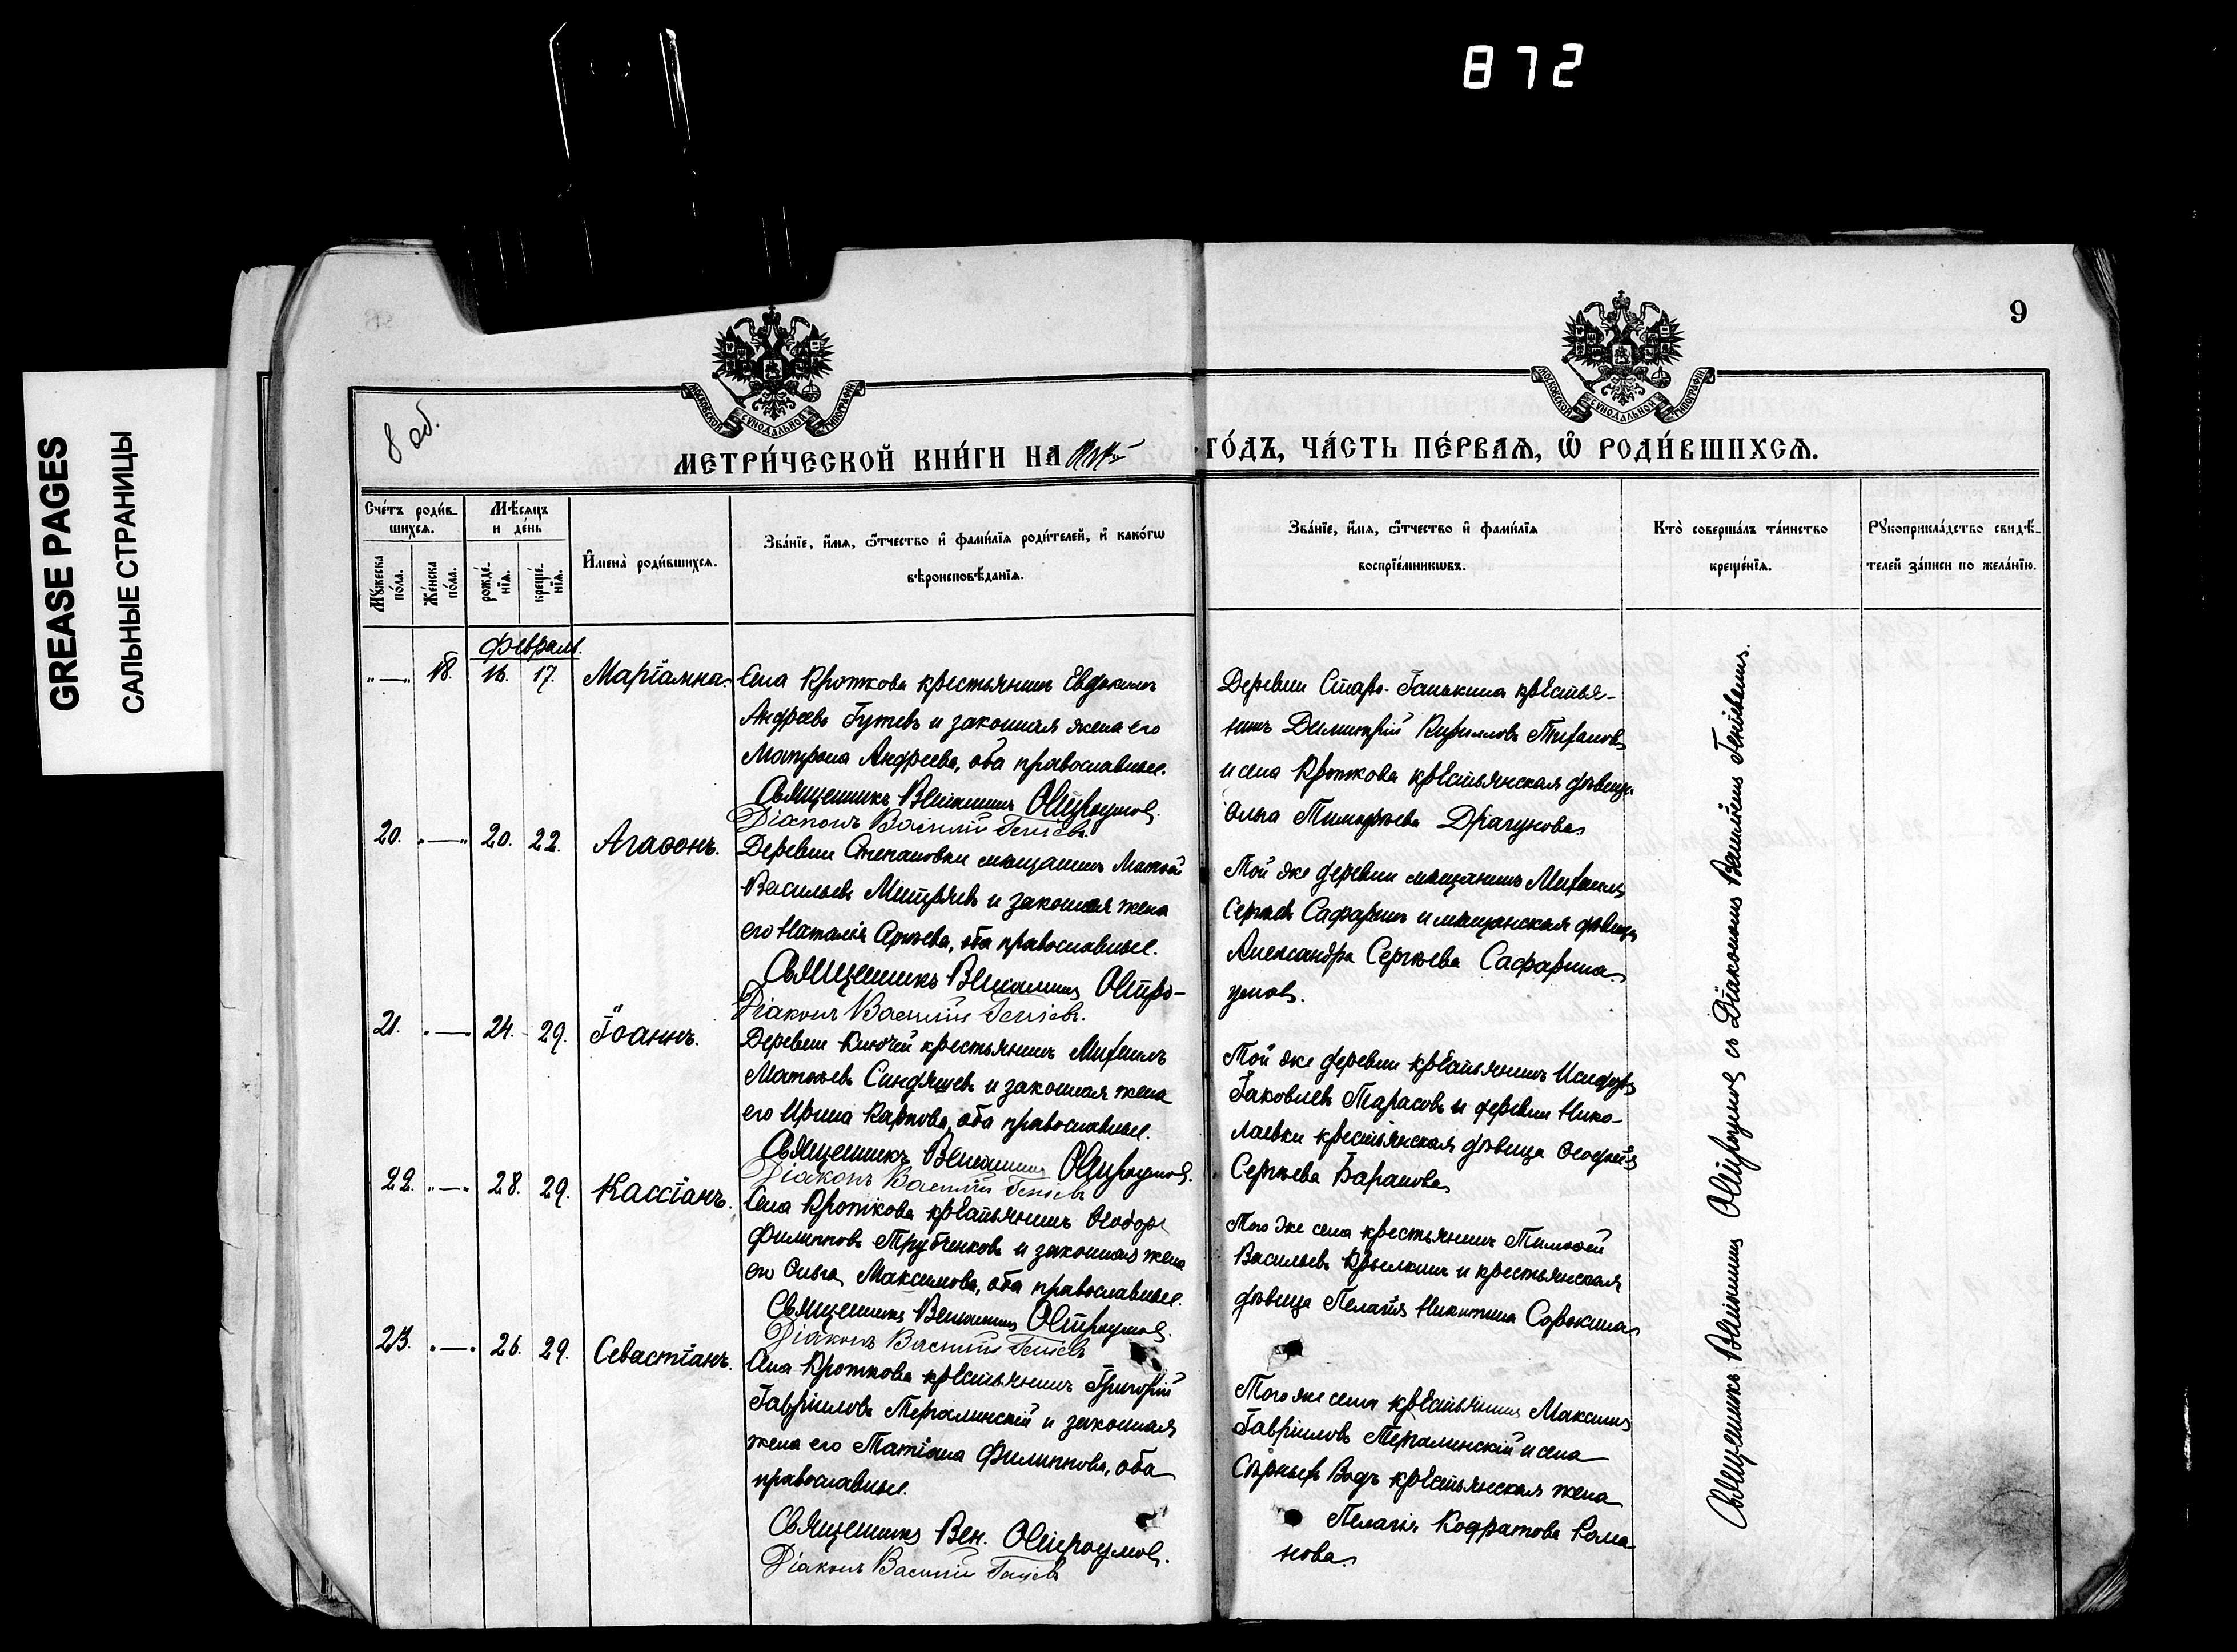 872
GREASE PAGES
САЛЬНЫЕ СТРАНИЦЫ
9
8 об.
МОСКОВСКОЙ СѴНОДАЛЬНОЙ ТИПОГРАФІИ
МОСКОВСКОЙ СѴНОДАЛЬНОЙ ТИПОГРАФІИ
МЕТРИ́ЧЕСКОЙ КНИ́ГИ НА
ГО́ДЪ, ЧА́СТЬ ПЕ́РВАѦ, Ѡ҆ РОДИ́ВШИХСѦ.
Сче́тъ роди́в-
шихсѧ.
Мꙋ́жеска
по́ла.
Же́нска
по́ла.
Мѣ́сѧцъ
и де́нь
рожде́-
нїѧ.
креще́-
нїѧ.
И҆мена̀ роди́вшихсѧ.
Зва́нїе, и҆́мѧ, ѻ҆́тчество и҆ фами́лїѧ роди́телей, и҆ како́гѡ
вѣроисповѣ́данїѧ.
Зва́нїе, и҆́мѧ, ѻ҆́тчество и҆ фами́лїѧ
воспрїе́мникѡвъ.
Кто̀ соверша́лъ та́инство
креще́нїѧ.
Рꙋкоприкла́дство свидѣ́-
телей за́писи по жела́нїю.
Февраль.
„—„ 18. 16. 17. Маріамна.
Села Кроткова крестьянинъ Евдокимъ
Андреевъ Гутевъ и законная жена его
Матрона Андреева, оба православные.
Священникъ Веніаминъ Остроумовъ.
Діаконъ Василій Геніевъ
Деревни Старо-Ганькина крестья-
нинъ Димитрій Кирилловъ Тихановъ
и села Кроткова крестьянская дѣвица
Ольга Тимофѣева Драгунова
20. „—„ 20. 22. Агаѳонъ.
Деревни Степановки мѣщанинъ Матѳей
Васильевъ Митряевъ и законная жена
его Наталія Сергѣева, оба православные.
Священникъ Веніаминъ Остро-
умовъ.
Діаконъ Василій Геніевъ.
Той же деревни мѣщанинъ Михаилъ
Сергѣевъ Сафаринъ и мѣщанская дѣвица
Александра Сергѣева Сафарина
21. „—„ 24. 29. Іоаннъ.
Деревни Ключей крестьянинъ Михаилъ
Матѳеевъ Синдяшевъ и законная жена
его Ирина Карпова, оба православные.
Священникъ Веніаминъ Остроумовъ.
Діаконъ Василій Геніевъ
Той же деревни крестьянинъ Исидоръ
Іаковлевъ Тарасовъ и деревни Нико-
лаевки крестьянская дѣвица
Сергѣева Баранова
22. „—„ 28. 29. Кассіанъ.
Села Кроткова крестьянинъ Ѳеодоръ
Филипповъ Трубченковъ и законная жена
его Ольга Максимова, оба православные.
Священникъ Веніаминъ Остроумовъ.
Діаконъ Василій Геніевъ
Того же села крестьянинъ Тимофей
Васильевъ Крылкинъ и крестьянская
дѣвица Пелагія Никитина Сорокина
23. „—„ 26. 29. Севастіанъ.
Села Кроткова крестьянинъ Григорій
Гавріиловъ Тергалинскій и законная
жена его Татіана Филиппова, оба
православные.
Священникъ Вен. Остроумовъ.
Діаконъ Василій Геніевъ
Того же села крестьянинъ Максимъ
Гавріиловъ Тергалинскій и села
Сѣрныхъ Водъ крестьянская жена
Пелагія Кодратова Рома-
нова
Священникъ Веніаминъ Остроумовъ съ Діакономъ Василіемъ Геніевымъ.